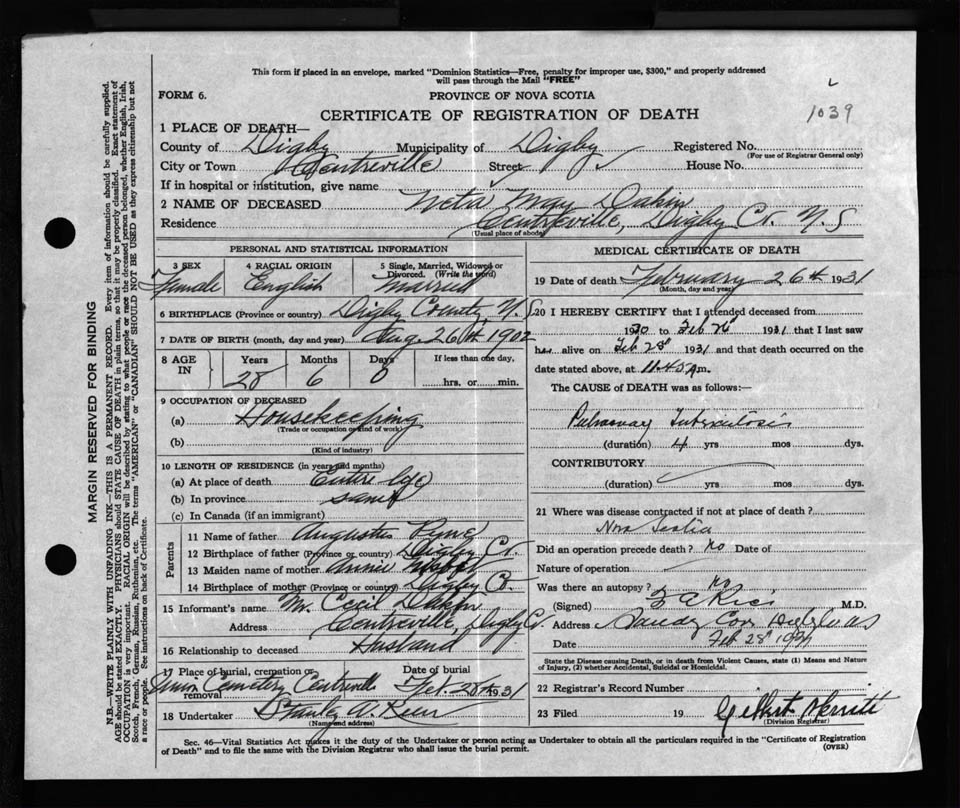 This form if placed in an envelope, marked "Dominion Statistics—Free, penalty for improper use, $300," and properly addressed
will pass through the Mail "FREE"
FORM 6.
PROVINCE OF NOVA SCOTIA
1039
CERTIFICATE OF REGISTRATION OF DEATH
1 PLACE OF DEATH—
County of Digby Municipality of Digby Registered No.
(For use of Registrar General only)
City or Town Centreville Street House No.
If in hospital or institution, give name
2 NAME OF DECEASED Neta May Dakin
Residence Centreville, Digby Co. N.S
(Usual place of abode)
PERSONAL AND STATISTICAL INFORMATION
3 SEX 4 RACIAL ORIGIN 5 Single, Married, Widowed or
Divorced. (Write the word)
Female English Married
6 BIRTHPLACE (Province or country) Digby County N.S
7 DATE OF BIRTH (month, day and year) Aug. 26th 1902
8 AGE IN Years Months Days If less than one day,
28 6 0 hrs. or min.
9 OCCUPATION OF DECEASED
(a) Housekeeping
(Trade or occupation or kind of work)
(b)
(Kind of industry)
10 LENGTH OF RESIDENCE (in years and months)
(a) At place of death Entire life
(b) In province same
(c) In Canada (if an immigrant)
Parents
11 Name of father Augustus
12 Birthplace of father (Province or country) Digby Co.
13 Maiden name of mother Annie
14 Birthplace of mother (Province or country) Digby Co.
15 Informant's name Mr. Cecil Dakin
Address Centreville, Digby Co.
16 Relationship to deceased Husband
17 Place of burial, cremation or removal Date of burial
Union Cemetery Centreville Feb. 28th 1931
18 Undertaker Stanley W.
(Name and address)
MEDICAL CERTIFICATE OF DEATH
19 Date of death February 26th 1931
(Month, day and year)
20 I HEREBY CERTIFY that I attended deceased from
1930 to Feb 26 1931 that I last saw
her alive on Feb 25th 1931 and that death occurred on the
date stated above, at 11.45 A.m.
The CAUSE OF DEATH was as follows:—
Pulmonary Tuberculosis
(duration) 4 yrs mos dys.
CONTRIBUTORY
(duration) yrs mos dys.
21 Where was disease contracted if not at place of death?
Nova Scotia
Did an operation precede death? No Date of
Nature of operation
Was there an autopsy? No
(Signed) M.D.
Address Sandy Cove
Date Feb 28th 1931
State the Disease causing Death, or in death from Violent Causes, state (1) Means and Nature
of Injury, (2) whether Accidental, Suicidal or Homicidal.
22 Registrar's Record Number
23 Filed 19 Gilbert Merritt
(Division Registrar)
Sec. 46—Vital Statistics Act makes it the duty of the Undertaker or person acting as Undertaker to obtain all the particulars required in the "Certificate of Registration
of Death" and to file the same with the Division Registrar who shall issue the burial permit.
(OVER)
MARGIN RESERVED FOR BINDING
N.B.—WRITE PLAINLY WITH UNFADING INK—THIS IS A PERMANENT RECORD. Every item of information should be carefully supplied.
AGE should be stated EXACTLY. PHYSICIANS should STATE CAUSE OF DEATH in plain terms, so that it may be properly classified. Exact statement of
OCCUPATION is very important. RACIAL ORIGIN will be described by stating to what people or race the deceased person belonged, whether English, Irish,
Scotch, French, German, Russian, Ruthenian, etc. The terms "AMERICAN" or "CANADIAN" SHOULD NOT BE USED as they express citizenship but not
a race or people. See instructions on back of Certificate.